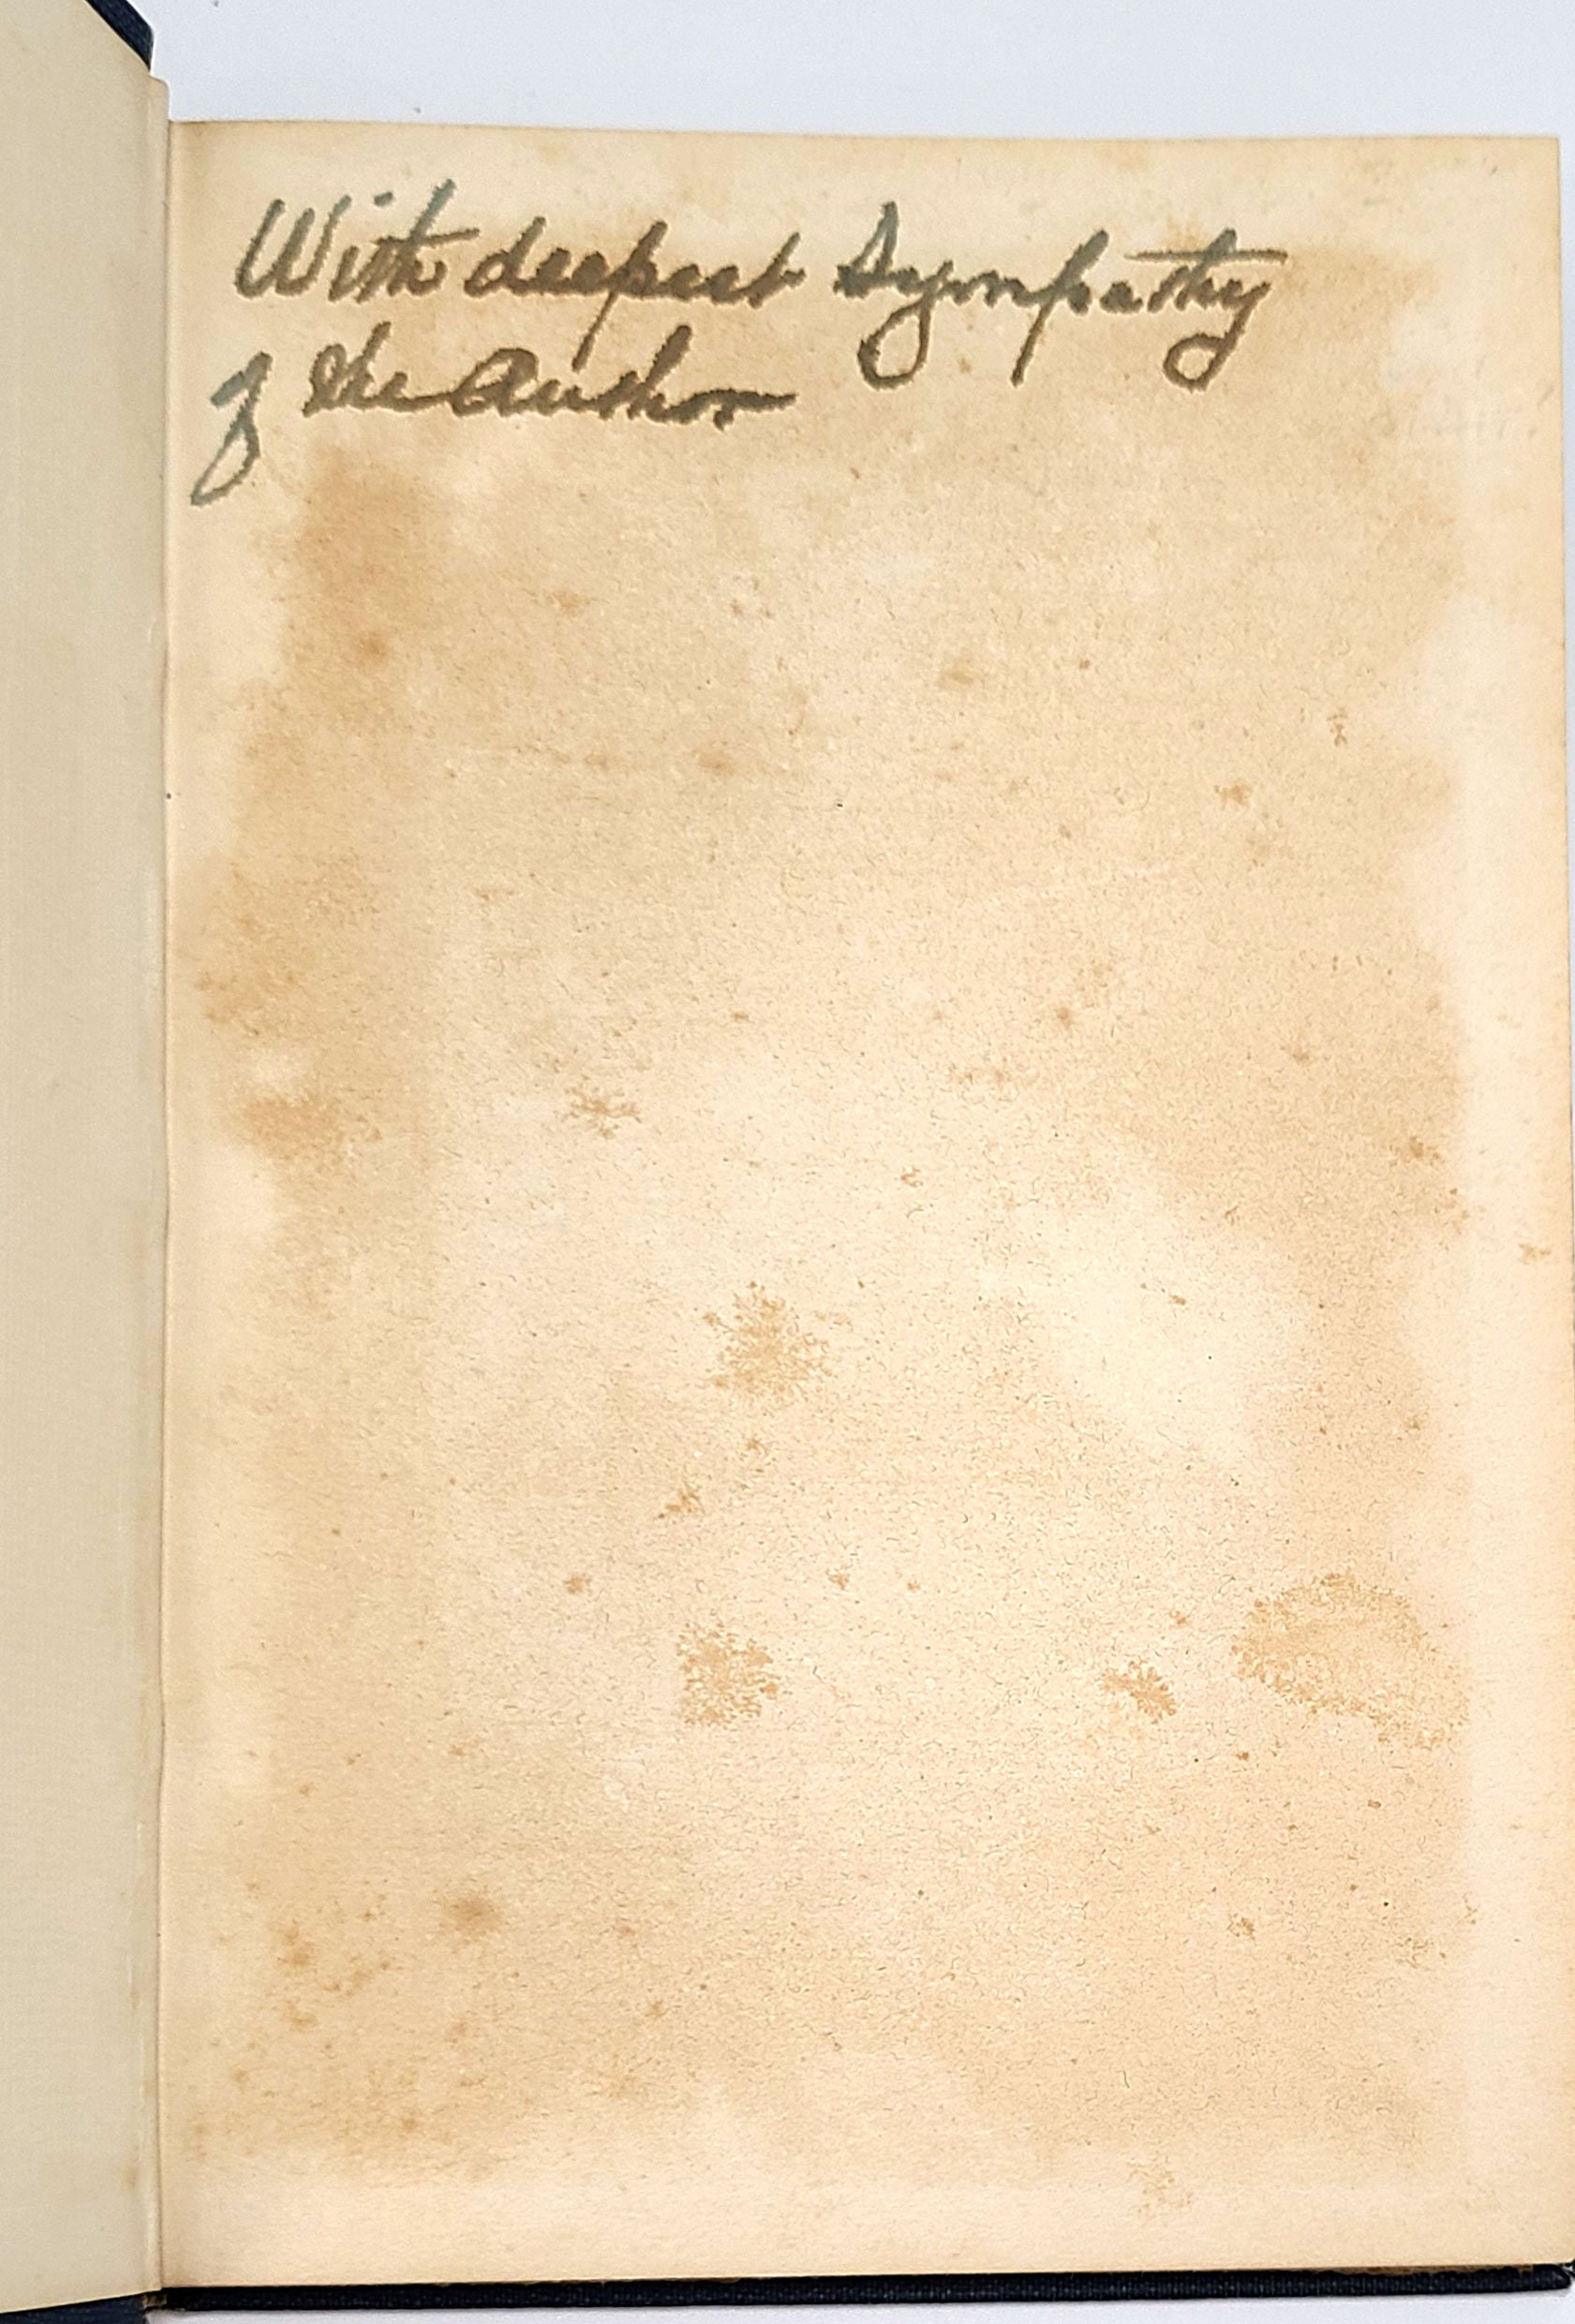 With deepest Sympathy
of the Author